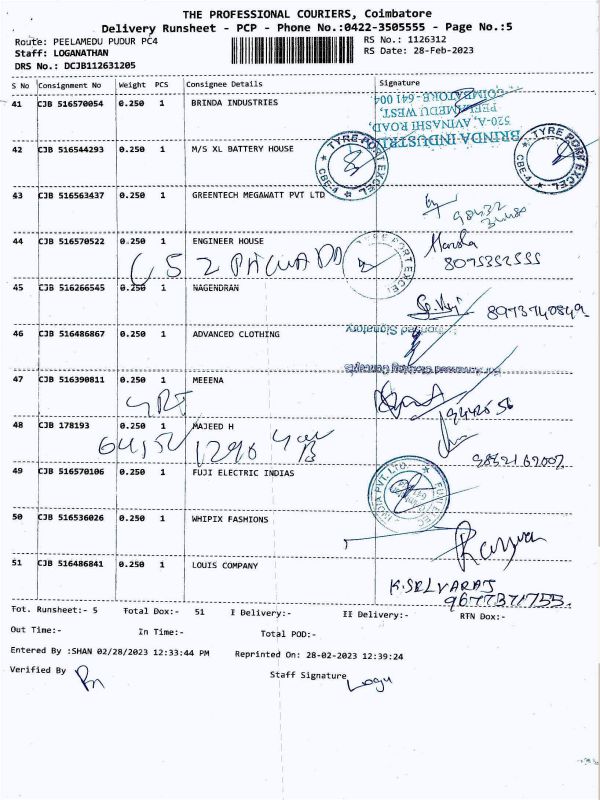 THE PROFESSIONAL COURIERS, Coimbatore
Delivery Runsheet - PCP - Phone No.:0422-3505555 - Page No.:5
Route: PEELAMEDU PUDUR PC4
RS No.: 1126312
Staff: LOGANATHAN
RS Date: 28-Feb-2023
DRS No.: DCJB112631205
S No Consignment No Weight PCS Consignee Details Signature
41 CJB 516570054 0.250 1 BRINDA INDUSTRIES
BRINDA INDUSTRI
520-A, AVINASHI ROAD,
PEELAMEDU WEST,
COIMBATORE - 641 004
42 CJB 516544293 0.250 1 M/S XL BATTERY HOUSE
TYRE PORT EXCEL CBE-4
TYRE PORT EXCEL CBE-4
43 CJB 516563437 0.250 1 GREENTECH MEGAWATT PVT LTD
44 CJB 516570522 0.250 1 ENGINEER HOUSE
8075352555
45 CJB 516266545 0.250 1 NAGENDRAN
8973740849
46 CJB 516486867 0.250 1 ADVANCED CLOTHING
Signatory
47 CJB 516390811 0.250 1 MEEENA
48 CJB 178193 0.250 1 MAJEED H
49 CJB 516570106 0.250 1 FUJI ELECTRIC INDIAS
50 CJB 516536026 0.250 1 WHIPIX FASHIONS
51 CJB 516486841 0.250 1 LOUIS COMPANY
K.SELVARAJ
9677371755.
Tot. Runsheet:- 5 Total Dox:- 51 I Delivery:- II Delivery:- RTN Dox:-
Out Time:- In Time:- Total POD:-
Entered By :SHAN 02/28/2023 12:33:44 PM Reprinted On: 28-02-2023 12:39:24
Verified By
Staff Signature Logu